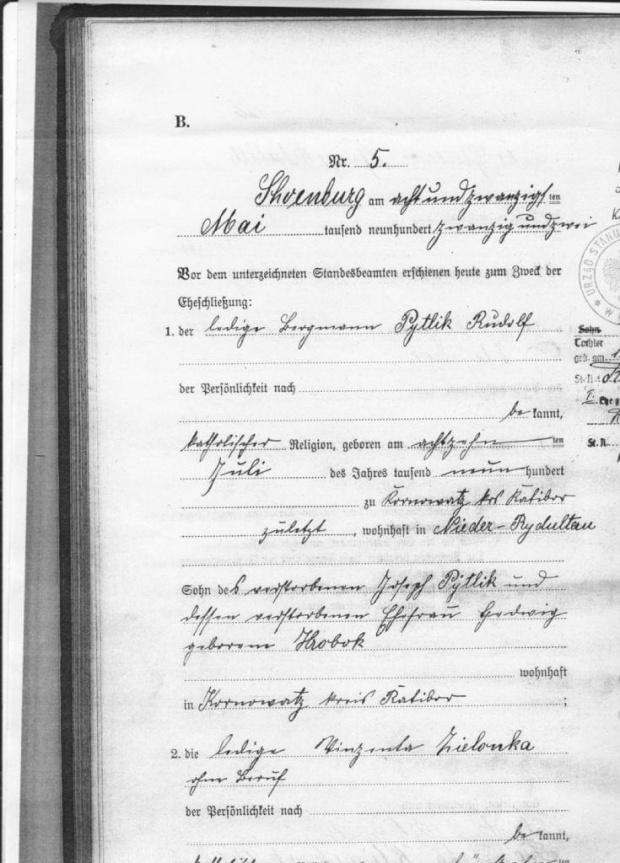 B.
Nr. 5.
Thoenburg am acht und zwanzigs ten
Mai tausend neunhundert zwanzig und zwei
Vor dem unterzeichneten Standesbeamten erschienen heute zum Zweck der
Eheschließung:
1. der ledige Bergmann Pytlik Rudolf
der Persönlichkeit nach
be kannt,
katholischer Religion, geboren am achtzehn ten
Juli des Jahres tausend neun hundert
zu Kornowatz Krs Ratibor
zuletzt, wohnhaft in Nieder-Rydultau
Sohn des verstorbenen Joseph Pytlik und
dessen verstorbenen Ehefrau Hedwig
geborene Hrobok
wohnhaft
in Kornowatz Kreis Ratibor;
2. die ledige Vinzenta Zielonka
ohne Beruf
der Persönlichkeit nach
be kannt,
Sohn
Tochter
geb. am
St. N.
URZĄD STANU